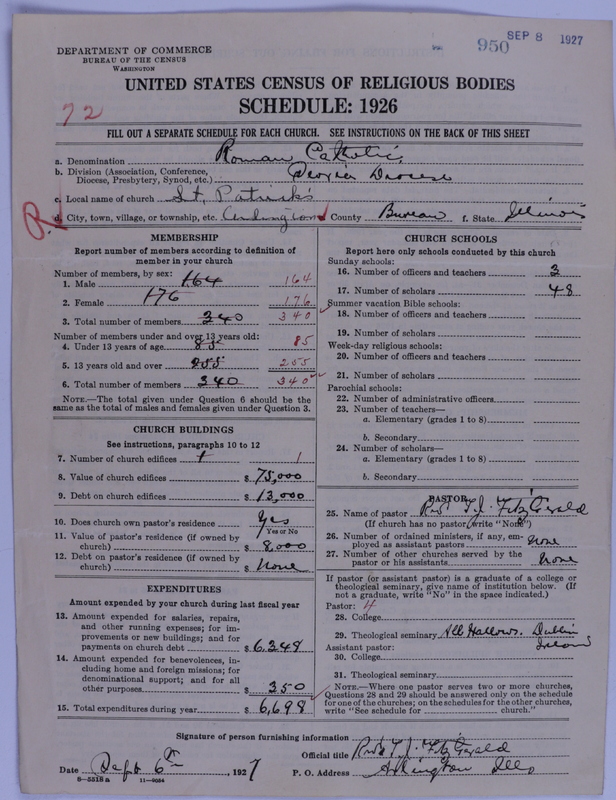 950 SEP 8 1927
DEPARTMENT OF COMMERCE
BUREAU OF THE CENSUS
WASHINGTON
UNITED STATES CENSUS OF RELIGIOUS BODIES
SCHEDULE: 1926
72
FILL OUT A SEPARATE SCHEDULE FOR EACH CHURCH. SEE INSTRUCTIONS ON THE BACK OF THIS SHEET
a. Denomination Roman Catholic
b. Division (Association, Conference, Diocese, Presbytery, Synod, etc.) Peoria Diocese
c. Local name of church St. Patrick's
R
d. City, town, village, or township, etc. Arlington County Bureau f. State Illinois
MEMBERSHIP
Report number of members according to definition of
member in your church
Number of members, by sex:
1. Male 164 164
2. Female 176 176
3. Total number of members 340 340
Number of members under and over 13 years old:
4. Under 13 years of age 85 85
5. 13 years old and over 255 255
6. Total number of members 340 340
NOTE.—The total given under Question 6 should be the
same as the total of males and females given under Question 3.
CHURCH BUILDINGS
See instructions, paragraphs 10 to 12
7. Number of church edifices 1 1
8. Value of church edifices $ 75,000
9. Debt on church edifices $ 13,000
10. Does church own pastor's residence Yes
Yes or No
11. Value of pastor's residence (if owned by
church) $ 8,000
12. Debt on pastor's residence (if owned by
church) $ None
EXPENDITURES
Amount expended by your church during last fiscal year
13. Amount expended for salaries, repairs,
and other running expenses; for im-
provements or new buildings; and for
payments on church debt $ 6,348
14. Amount expended for benevolences, in-
cluding home and foreign missions; for
denominational support; and for all
other purposes $ 350
15. Total expenditures during year $ 6,698
CHURCH SCHOOLS
Report here only schools conducted by this church
Sunday schools:
16. Number of officers and teachers 3
17. Number of scholars 48
Summer vacation Bible schools:
18. Number of officers and teachers
19. Number of scholars
Week-day religious schools:
20. Number of officers and teachers
21. Number of scholars
Parochial schools:
22. Number of administrative officers
23. Number of teachers—
a. Elementary (grades 1 to 8)
b. Secondary
24. Number of scholars—
a. Elementary (grades 1 to 8)
b. Secondary
PASTOR
25. Name of pastor Rev. T. J. FitzGerald
(If church has no pastor, write "None")
26. Number of ordained ministers, if any, em-
ployed as assistant pastors None
27. Number of other churches served by the
pastor or his assistants None
If pastor (or assistant pastor) is a graduate of a college or
theological seminary, give name of institution below. (If
not a graduate, write "No" in the space indicated.)
Pastor: 4
28. College
29. Theological seminary All Hallows. Dublin
Ireland
Assistant pastor:
30. College
31. Theological seminary
NOTE.—Where one pastor serves two or more churches,
Questions 28 and 29 should be answered only on the schedule
for one of the churches; on the schedules for the other churches,
write "See schedule for church."
Signature of person furnishing information
Rev. T. J. FitzGerald
Official title
Date Sept 6th, 1927 P. O. Address Arlington Ills
8—5318 a 11—9084